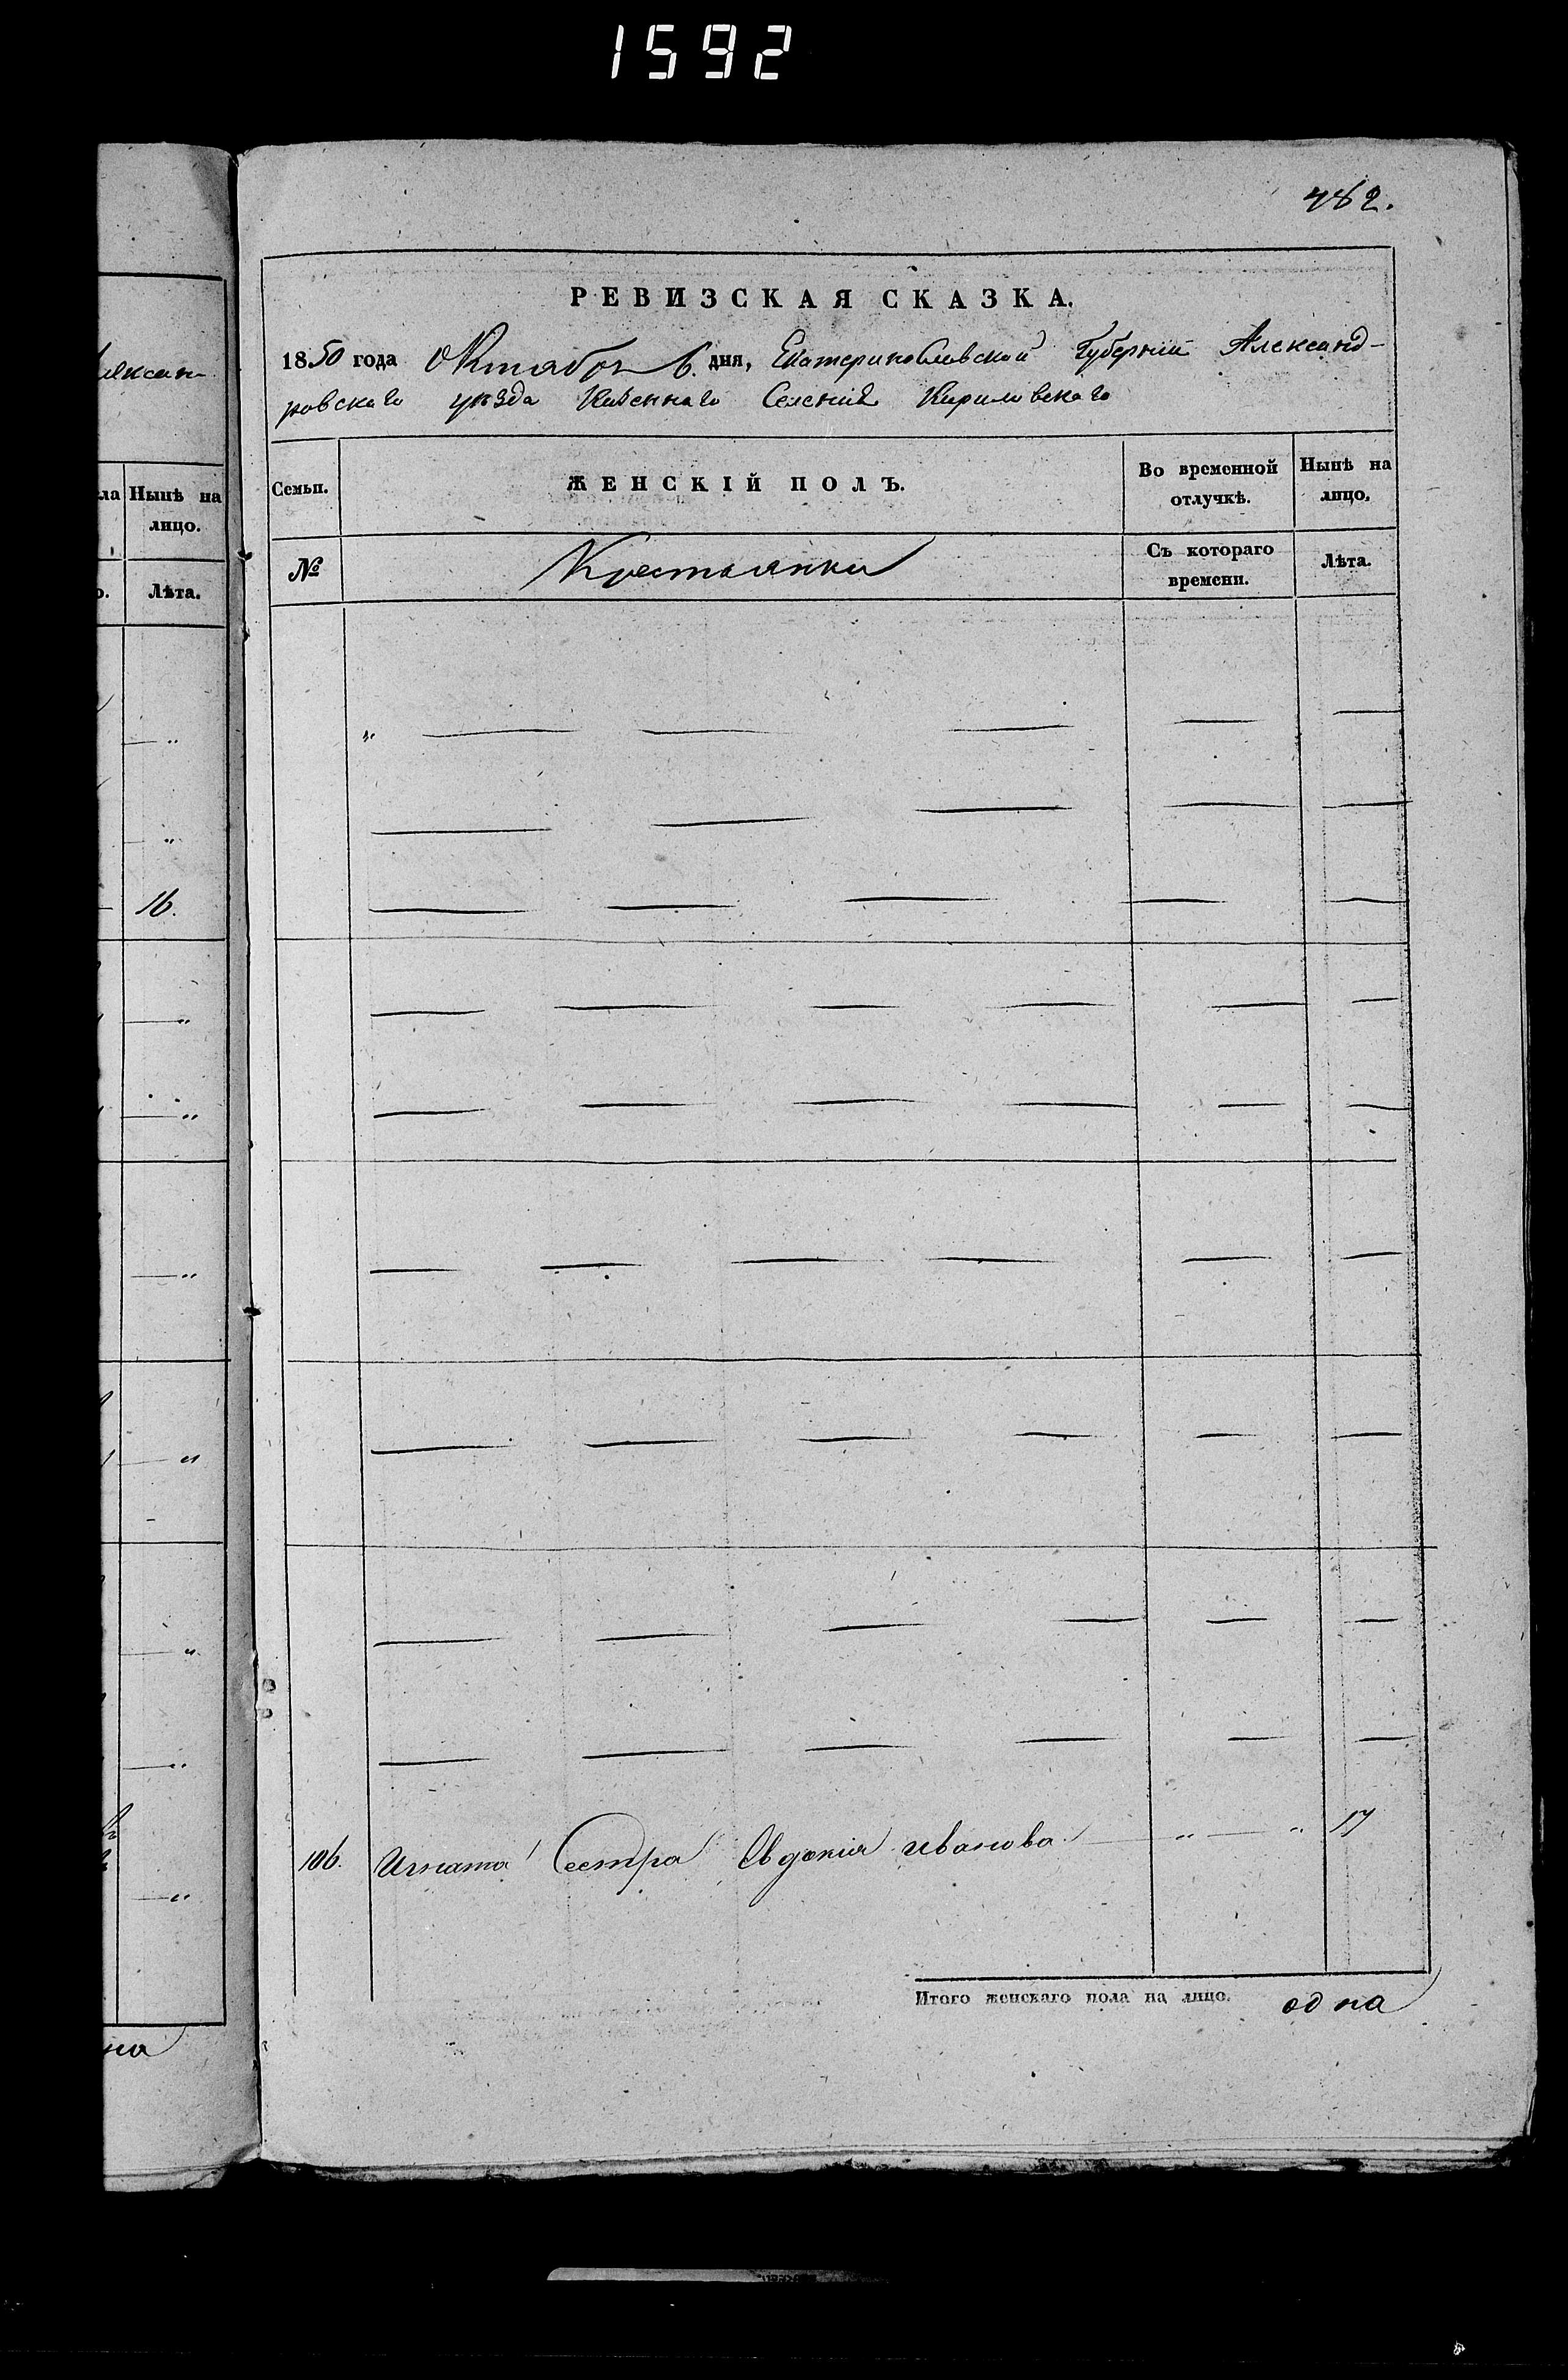 1592
482.
РЕВИЗСКАЯ СКАЗКА.
1850 года Октября 6. дня, Екатеринославской Губернии Александ-
ровскаго уѣзда Казеннаго Селения Кириловскаго
Семьи.
ЖЕНСКІЙ ПОЛЪ.
Во временной
отлучкѣ.
Нынѣ на
лицо.
№
Крестьянки
Съ котораго
времени.
Лѣта.
106. Игната Сестра Евдокия Иванова — " — " 17
Итого женскаго пола на лицо. одна
Нынѣ на
лицо.
Лѣта.
16.